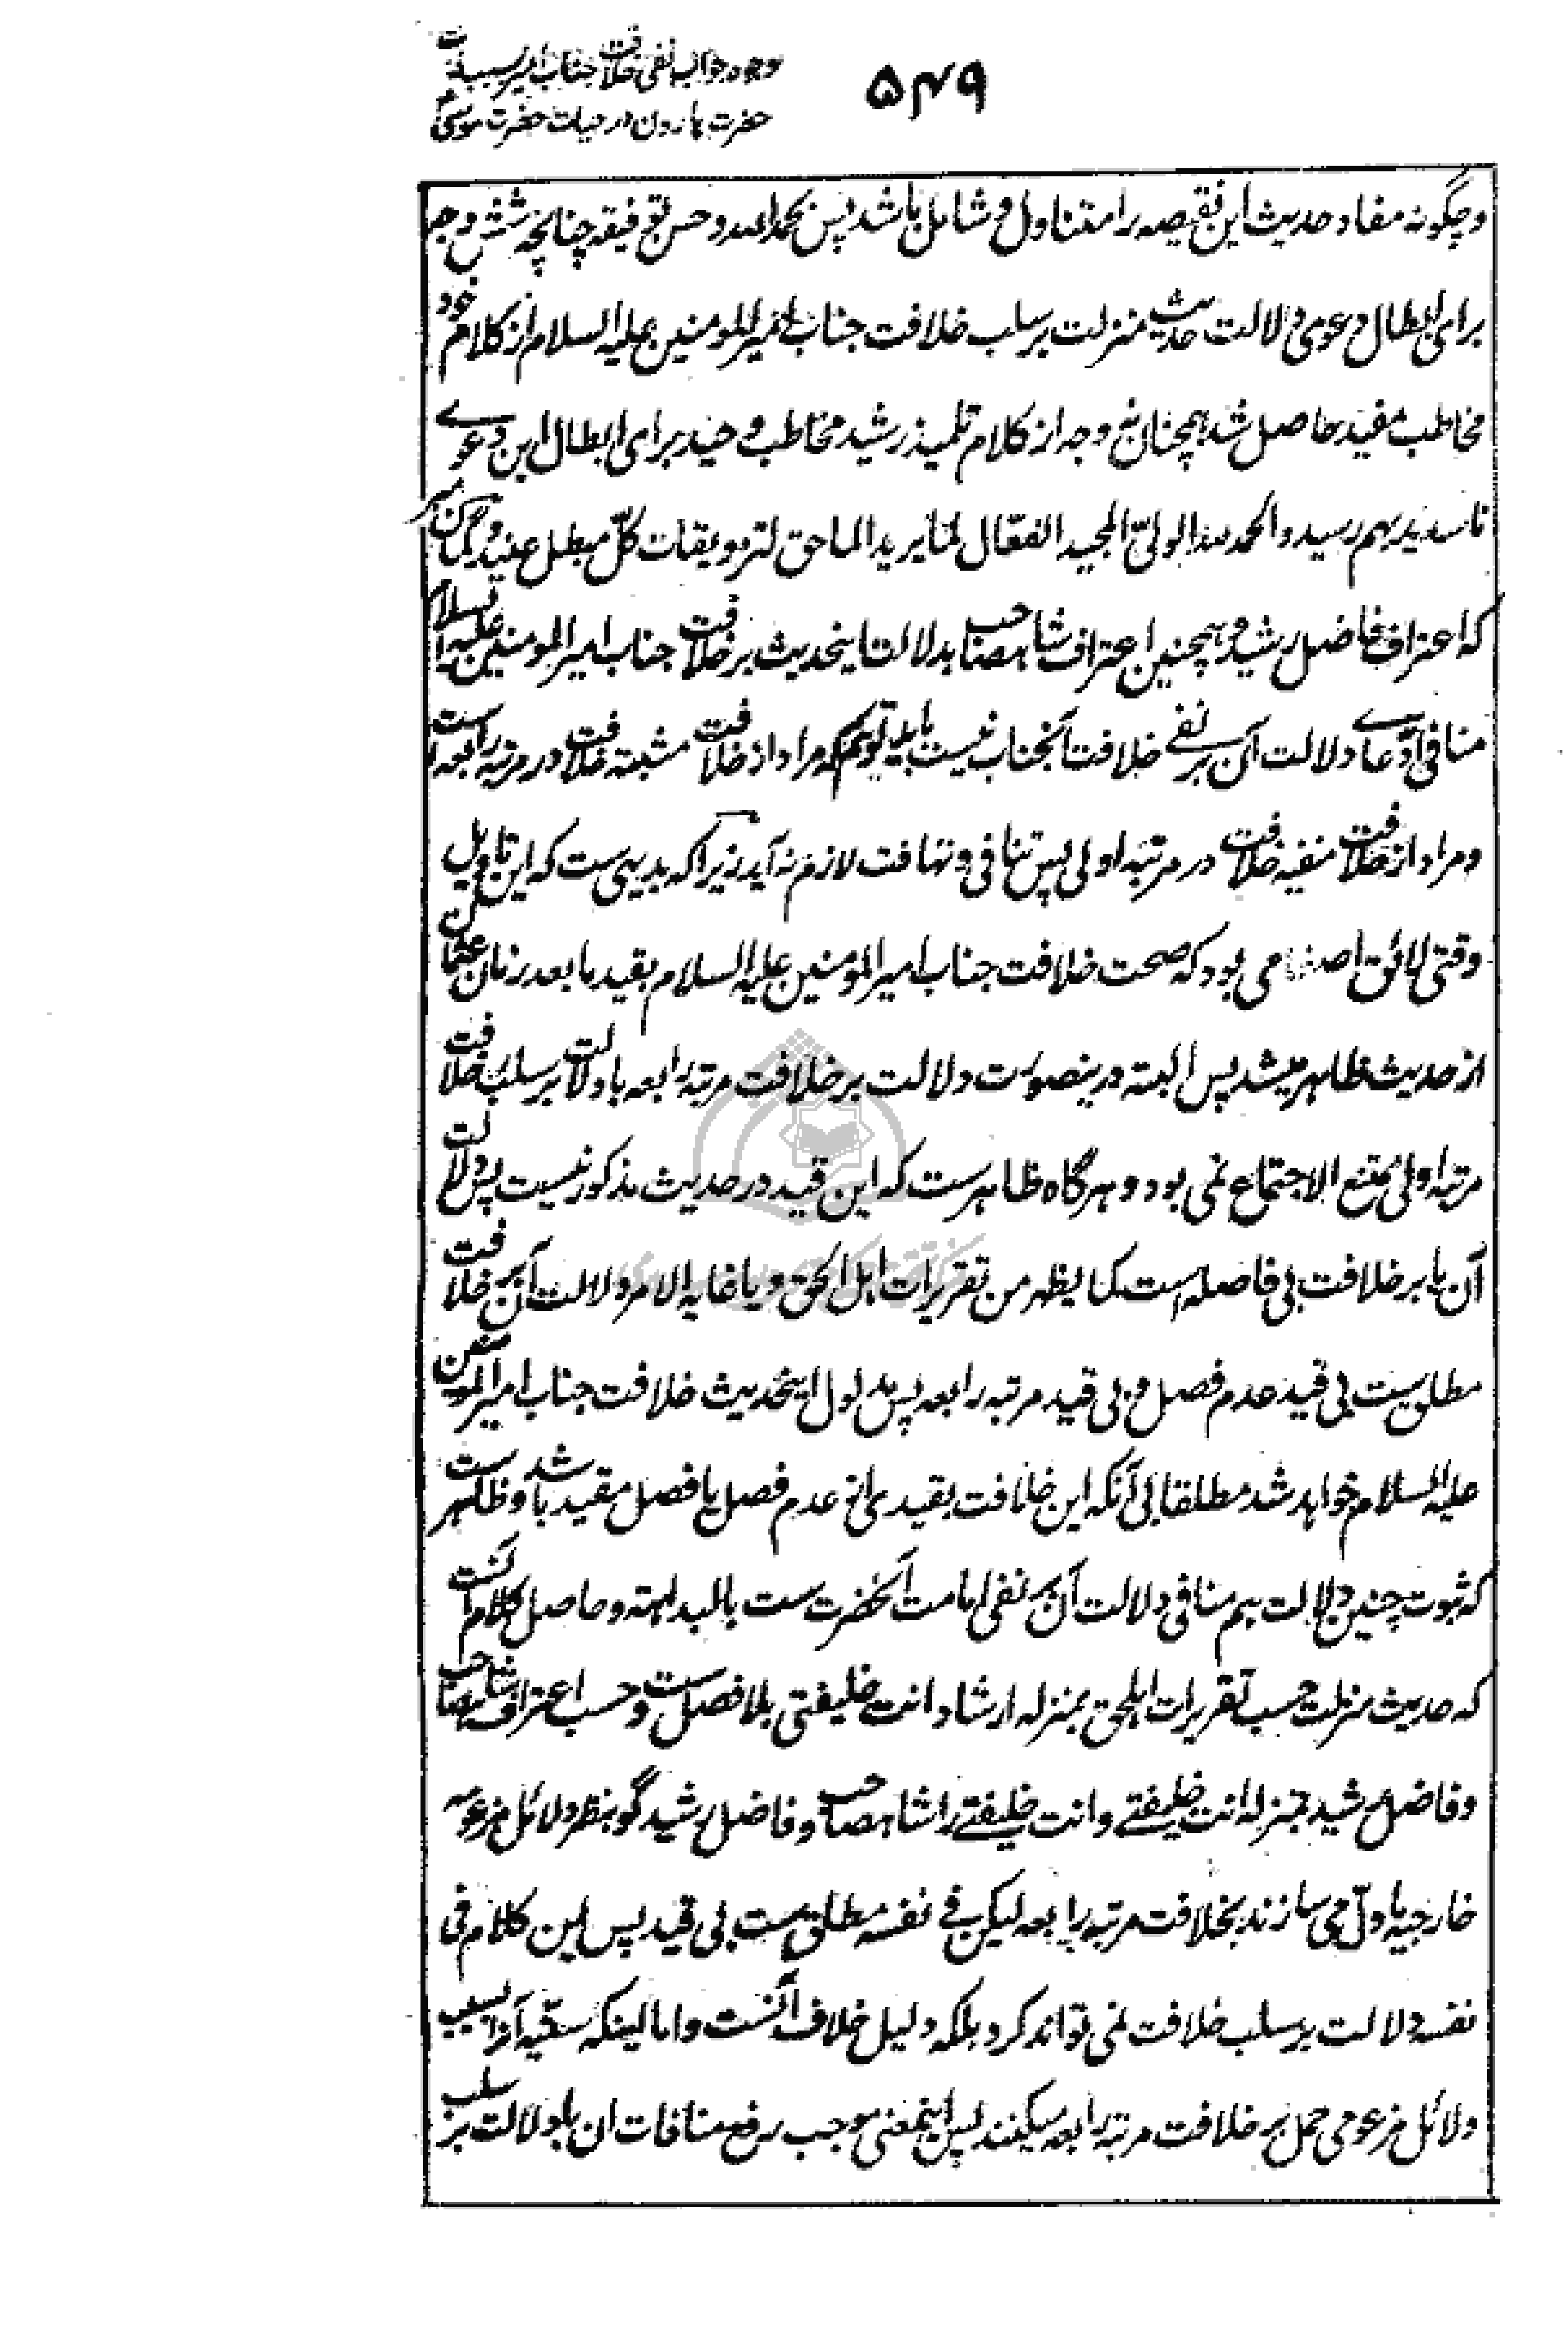 ۵۴۹
وجوه جواب نفی خلافت جناب امیر بسبب
حضرت هارون در حیات حضرت موسیٰ
و چگونه مفاد حدیث این نقیصه را متناول و شامل باشد پس بحمد الله و حسن توفیقه چنانچه شش وجه
برای ابطال دعوی دلالت حدیث منزلت بر سلب خلافت جناب امیرالمومنین علیه السلام از کلام خود
مخاطب مفید حاصل شد همچنان نه وجه از کلام تلمیذ رشید مخاطب وحید برای ابطال این دعوے
ناسدید بهم رسید و الحمد لله الولیّ المجید الفعّال لما یرید الماحق لتزویقات کلّ مبطل عنید و
که اعتراف فاضل رشید و همچنین اعتراف شاهصاحب بدلالت اینحدیث بر خلافت جناب امیرالمومنین علیه السلام
منافی ادّعاے دلالت آن بر نفی خلافت آنجناب نیست باید توهم که مراد از خلافت مثبته خلافت در مرتبه رابعه است
و مراد از خلافت منفیه خلافت در مرتبه اولی پس تنافی و تهافت لازم نه آید زیرا که بدیهی ست که این تاویل
وقتی لائق اصغا می بود که صحت خلافت جناب امیرالمومنین علیه السلام بقید ما بعد زمان عثمان
از حدیث ظاهر میشد پس البته درینصورت دلالت بر خلافت مرتبه رابعه با دلالت بر سلب خلافت
مرتبه اولی ممتنع الاجتماع نمی بود و هر گاه ظاهرست که این قید در حدیث مذکور نیست پس دلالت
آن یا بر خلافت بی فاصله است کما یظهر من تقریرات اهل الحق و یا غایه الامر دلالت آن بر خلافت
مطلق ست بی قید عدم فصل و بی قید مرتبه رابعه پس مدلول اینحدیث خلافت جناب امیرالمومنین
علیه السلام خواهد شد مطلقا بی آنکه این خلافت بقیدی از عدم فصل یا فصل مقید باشد و ظاهرست
که ثبوت چنین دلالت هم منافی دلالت آن بر نفی امامت آنحضرت ست بالبداهته و حاصل کلام آنست
که حدیث منزلت حسب تقریرات اهلحق بمنزله ارشاد انت خلیفتی بلا فصل ست و حسب اعتراف شاهصاحب
و فاضل رشید بمنزله انت خلیفتے و انت خلیفتے را شاهصاحب و فاضل رشید گو بنظر دلائل مزعومه
خارجیه یا دلّ می سازند بخلافت مرتبه رابعه لیکن فے نفسه مطلق ست بی قید پس این کلام فی
نفسه دلالت بر سلب خلافت نمی تواند کرد بلکه دلیل خلاف آنست و اما اینکه سنّیه آنرا بسبب
دلائل مزعومی حمل بر خلافت مرتبه رابعه میکنند پس اینمعنی موجب رفع منافات ان با دلالت بر سلب